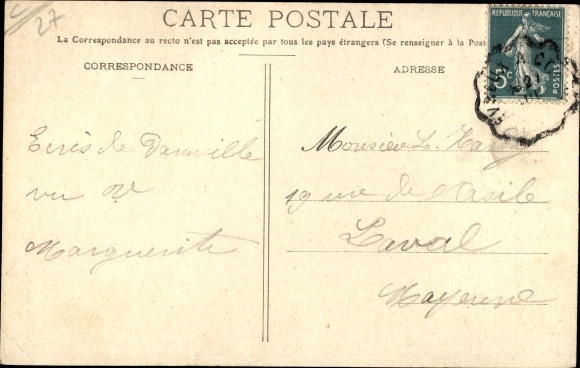 27
CARTE POSTALE
La Correspondance au recto n'est pas acceptée par tous les pays étrangers (Se renseigner à la Post
CORRESPONDANCE
ADRESSE
REPUBLIQUE FRANÇAISE
5c
POSTES
de Damville
vu
Marguerite
Monsieur L.
19 rue de l'Asile
Laval
Mayenne